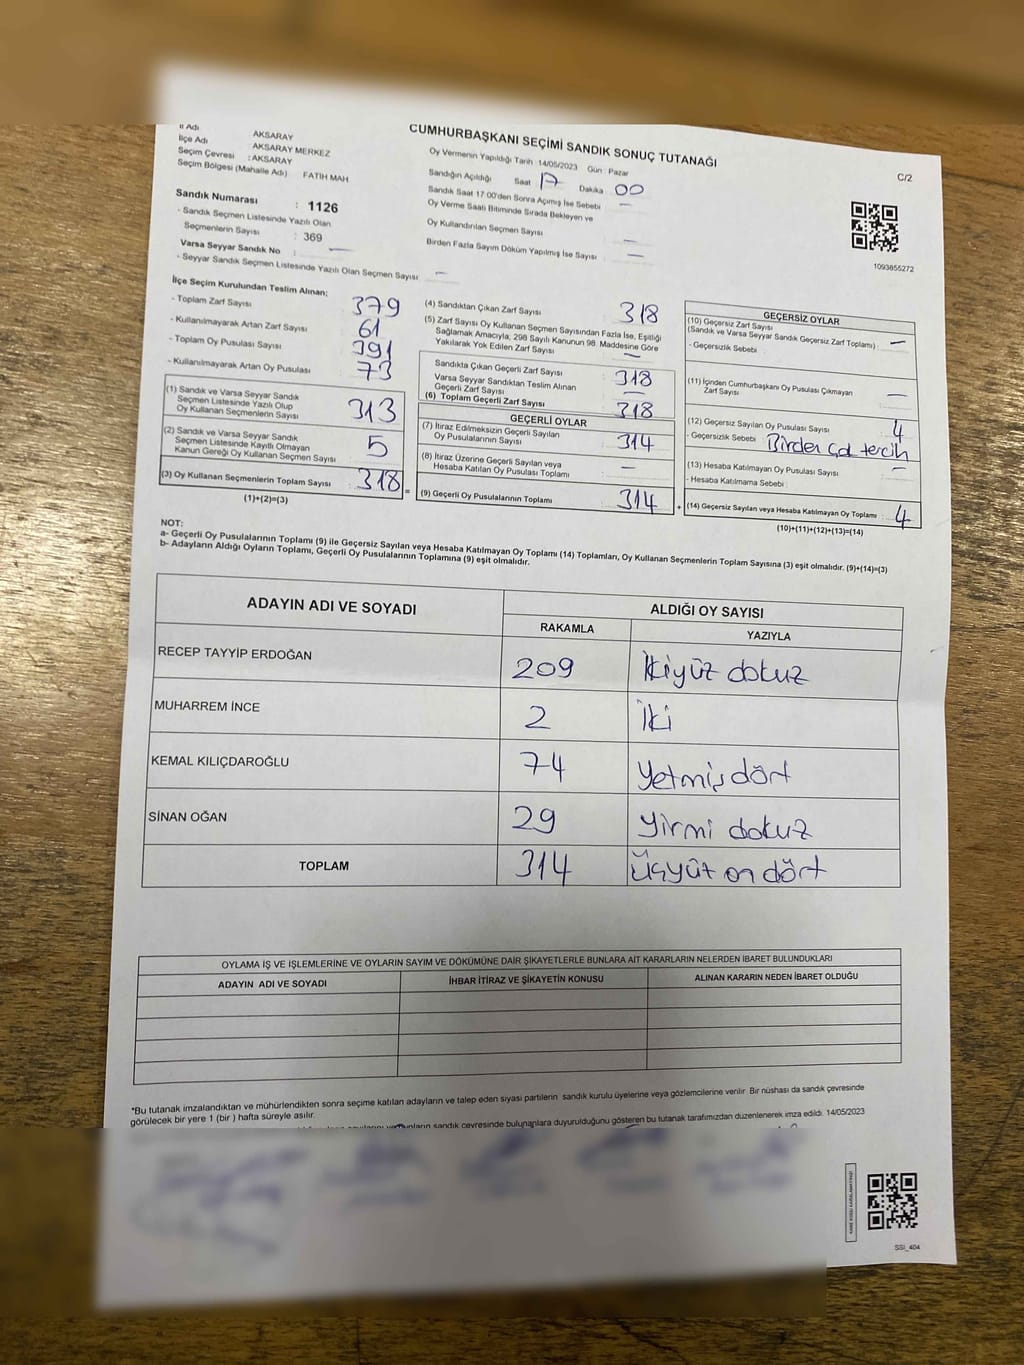 İl Adı
İlçe Adı : AKSARAY
Seçim Çevresi : AKSARAY MERKEZ
Seçim Bölgesi (Mahalle Adı) : AKSARAY
FATİH MAH
Sandık Numarası : 1126
- Sandık Seçmen Listesinde Yazılı Olan
Seçmenlerin Sayısı : 369
Varsa Seyyar Sandık No : —
- Seyyar Sandık Seçmen Listesinde Yazılı Olan Seçmen Sayısı : —
CUMHURBAŞKANI SEÇİMİ SANDIK SONUÇ TUTANAĞI
Oy Vermenin Yapıldığı Tarih : 14/05/2023 Gün : Pazar
Sandığın Açıldığı Saat 17 Dakika 00
Sandık Saat 17:00'den Sonra Açımış İse Sebebi : —
Oy Verme Saati Bitiminde Sırada Bekleyen ve
Oy Kullandırılan Seçmen Sayısı : —
Birden Fazla Sayım Döküm Yapılmış İse Sayısı : —
C/2
1093855272
İlçe Seçim Kurulundan Teslim Alınan;
- Toplam Zarf Sayısı : 379
- Kullanılmayarak Artan Zarf Sayısı : 61
- Toplam Oy Pusulası Sayısı : 391
- Kullanılmayarak Artan Oy Pusulası : 73
(1) Sandık ve Varsa Seyyar Sandık
Seçmen Listesinde Yazılı Olup
Oy Kullanan Seçmenlerin Sayısı : 313
(2) Sandık ve Varsa Seyyar Sandık
Seçmen Listesinde Kayıtlı Olmayan
Kanun Gereği Oy Kullanan Seçmen Sayısı : 5
(3) Oy Kullanan Seçmenlerin Toplam Sayısı : 318 =
(1)+(2)=(3)
(4) Sandıktan Çıkan Zarf Sayısı : 318
(5) Zarf Sayısı Oy Kullanan Seçmen Sayısından Fazla İse, Eşitliği
Sağlamak Amacıyla, 298 Sayılı Kanunun 98. Maddesine Göre
Yakılarak Yok Edilen Zarf Sayısı : —
Sandıkta Çıkan Geçerli Zarf Sayısı : 318
Varsa Seyyar Sandıktan Teslim Alınan
Geçerli Zarf Sayısı : —
(6) Toplam Geçerli Zarf Sayısı : 318
GEÇERLİ OYLAR
(7) İtiraz Edilmeksizin Geçerli Sayılan
Oy Pusulalarının Sayısı : 314
(8) İtiraz Üzerine Geçerli Sayılan veya
Hesaba Katılan Oy Pusulası Toplamı : —
(9) Geçerli Oy Pusulalarının Toplamı : 314 +
GEÇERSİZ OYLAR
(10) Geçersiz Zarf Sayısı
(Sandık ve Varsa Seyyar Sandık Geçersiz Zarf Toplamı) : —
- Geçersizlik Sebebi :
(11) İçinden Cumhurbaşkanı Oy Pusulası Çıkmayan
Zarf Sayısı : —
(12) Geçersiz Sayılan Oy Pusulası Sayısı : 4
- Geçersizlik Sebebi : Birden çok tercih
(13) Hesaba Katılmayan Oy Pusulası Sayısı : —
- Hesaba Katılmama Sebebi :
(14) Geçersiz Sayılan veya Hesaba Katılmayan Oy Toplamı : 4
(10)+(11)+(12)+(13)=(14)
NOT:
a- Geçerli Oy Pusulalarının Toplamı (9) ile Geçersiz Sayılan veya Hesaba Katılmayan Oy Toplamı (14) Toplamları, Oy Kullanan Seçmenlerin Toplam Sayısına (3) eşit olmalıdır. (9)+(14)=(3)
b- Adayların Aldığı Oyların Toplamı, Geçerli Oy Pusulalarının Toplamına (9) eşit olmalıdır.
ADAYIN ADI VE SOYADI ALDIĞI OY SAYISI
RAKAMLA YAZIYLA
RECEP TAYYİP ERDOĞAN 209 İkiyüz dokuz
MUHARREM İNCE 2 İki
KEMAL KILIÇDAROĞLU 74 Yetmiş dört
SİNAN OĞAN 29 Yirmi dokuz
TOPLAM 314 Üçyüz on dört
OYLAMA İŞ VE İŞLEMLERİNE VE OYLARIN SAYIM VE DÖKÜMÜNE DAİR ŞİKAYETLERLE BUNLARA AİT KARARLARIN NELERDEN İBARET BULUNDUKLARI
ADAYIN ADI VE SOYADI İHBAR İTİRAZ VE ŞİKAYETİN KONUSU ALINAN KARARIN NEDEN İBARET OLDUĞU
*Bu tutanak imzalandıktan ve mühürlendikten sonra seçime katılan adayların ve talep eden siyasi partilerin sandık kurulu üyelerine veya gözlemcilerine verilir. Bir nüshası da sandık çevresinde
görülecek bir yere 1 (bir ) hafta süreyle asılır.
sandık çevresinde bulunanlara duyurulduğunu gösteren bu tutanak tarafımızdan düzenlenerek imza edildi. 14/05/2023
SSI_404